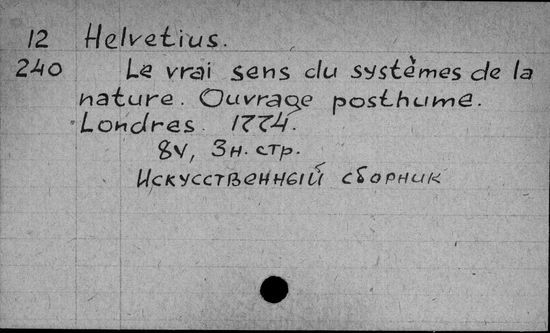 12 Helvetius.
240 Le vrai sens du systèmes de la
nature. Ouvrage posthume.
Londres. 1774.
84, 3н. стр.
Искусственный сборник